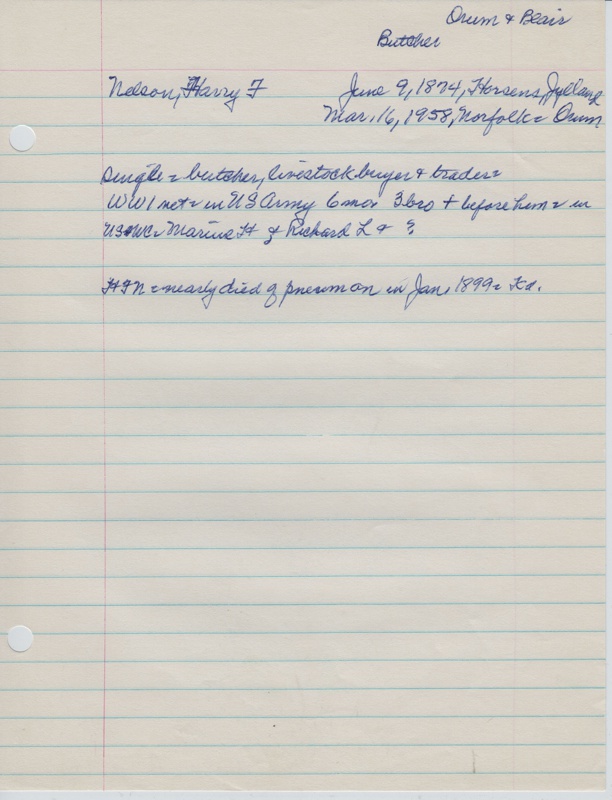 Orum & Blair
Butcher
Nelson, Harry F June 9, 1874, Horsens, Jylland
Mar. 16, 1958, Norfolk = Orum
Single = butcher, livestock buyer & trader =
WW1 not = in US Army 6 mo = 3 bro + before him = in
US = Marius H & Richard L & ?
HFN = nearly died of pneumon in Jan, 1899 =